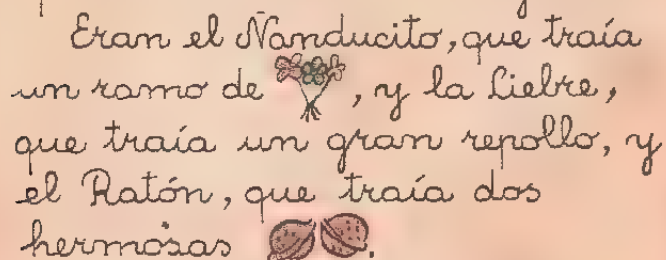 Eran el Ñanducito, que traía
un ramo de , y la Liebre,
que traía un gran repollo, y
el Ratón, que traía dos
hermosas .